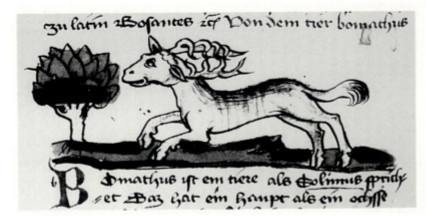 zu latin Bosantes ⁊c Von dem tier bomachus
Bomathus ist ein tiere als Solinus sprich
et Daz hat ein haupt als ein ochsse